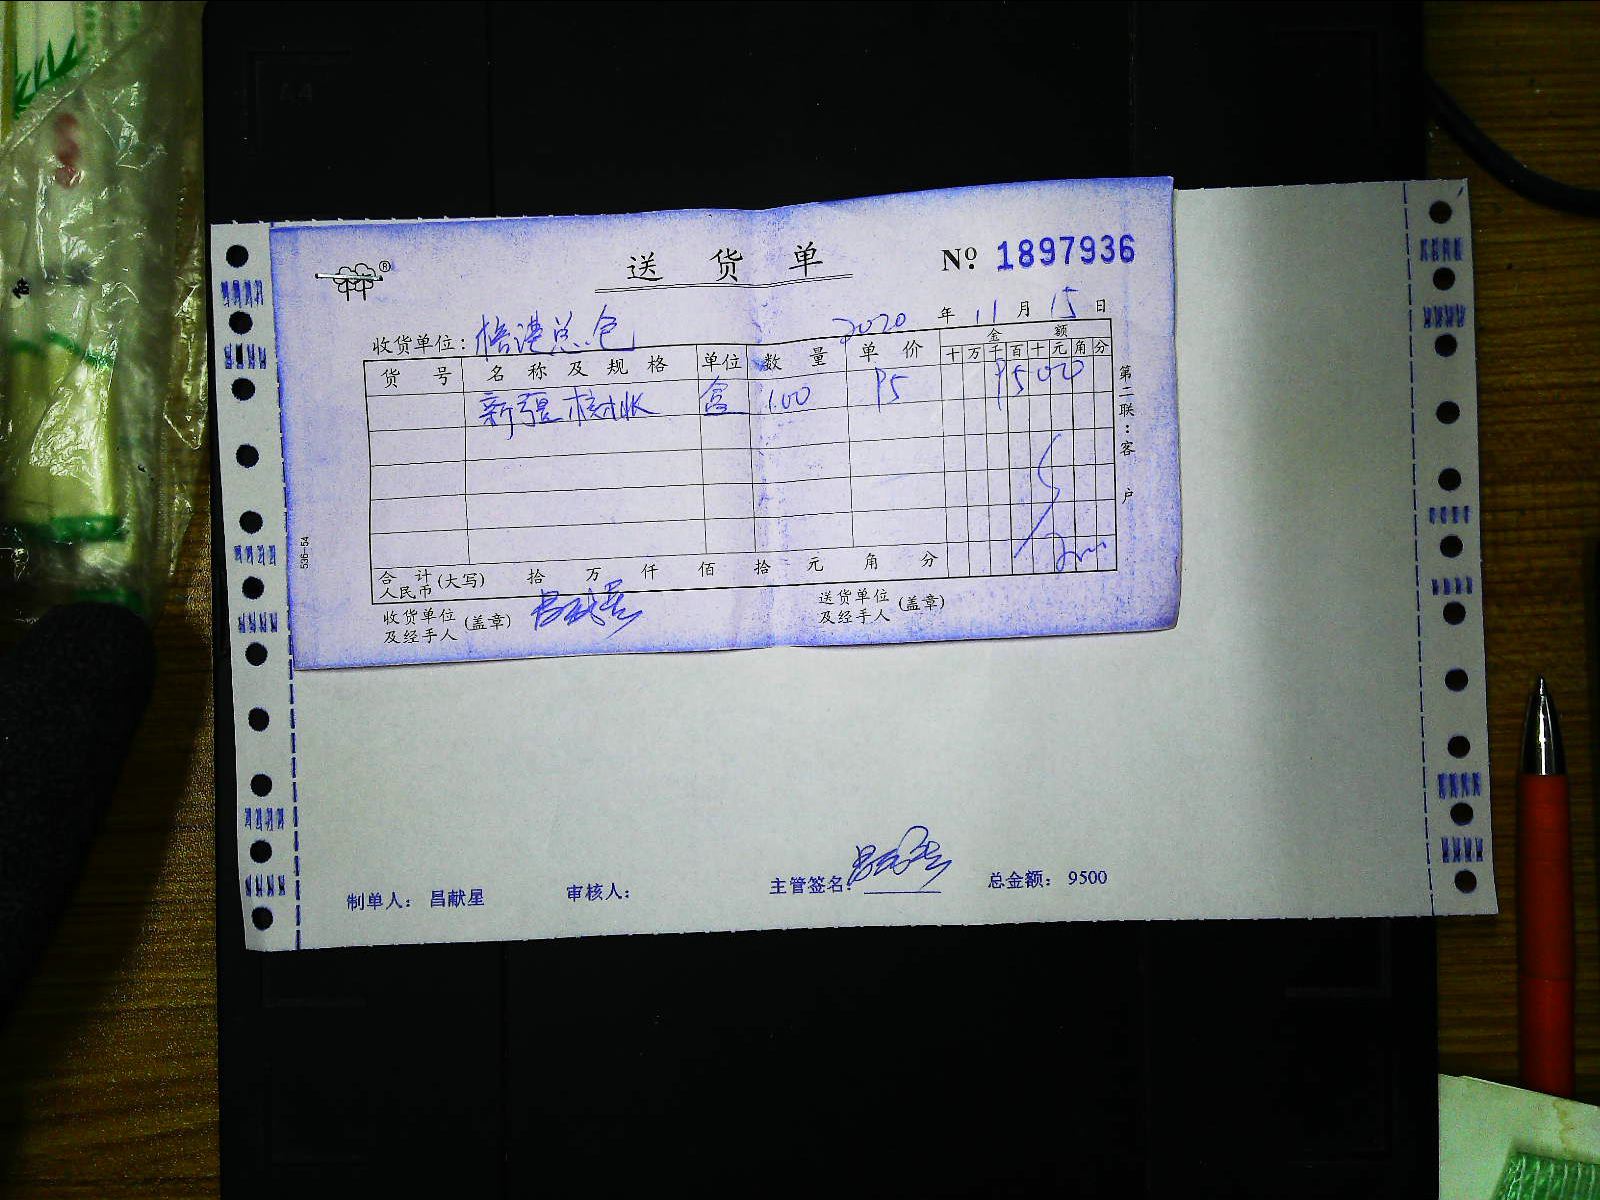 送 货 单
Nº 1897936
收货单位:
2020 年 11 月 15 日
货 号 名 称 及 规 格 单位 数 量 单 价 金 额
十 万 千 百 十 元 角 分
新疆核 盒 100 95 9500
第二联:客 户
合 计 人民币 (大写) 拾 万 仟 佰 拾 元 角 分
收货单位及经手人 (盖章)
送货单位及经手人 (盖章)
536-54
制单人: 昌献星 审核人: 主管签名: 总金额: 9500